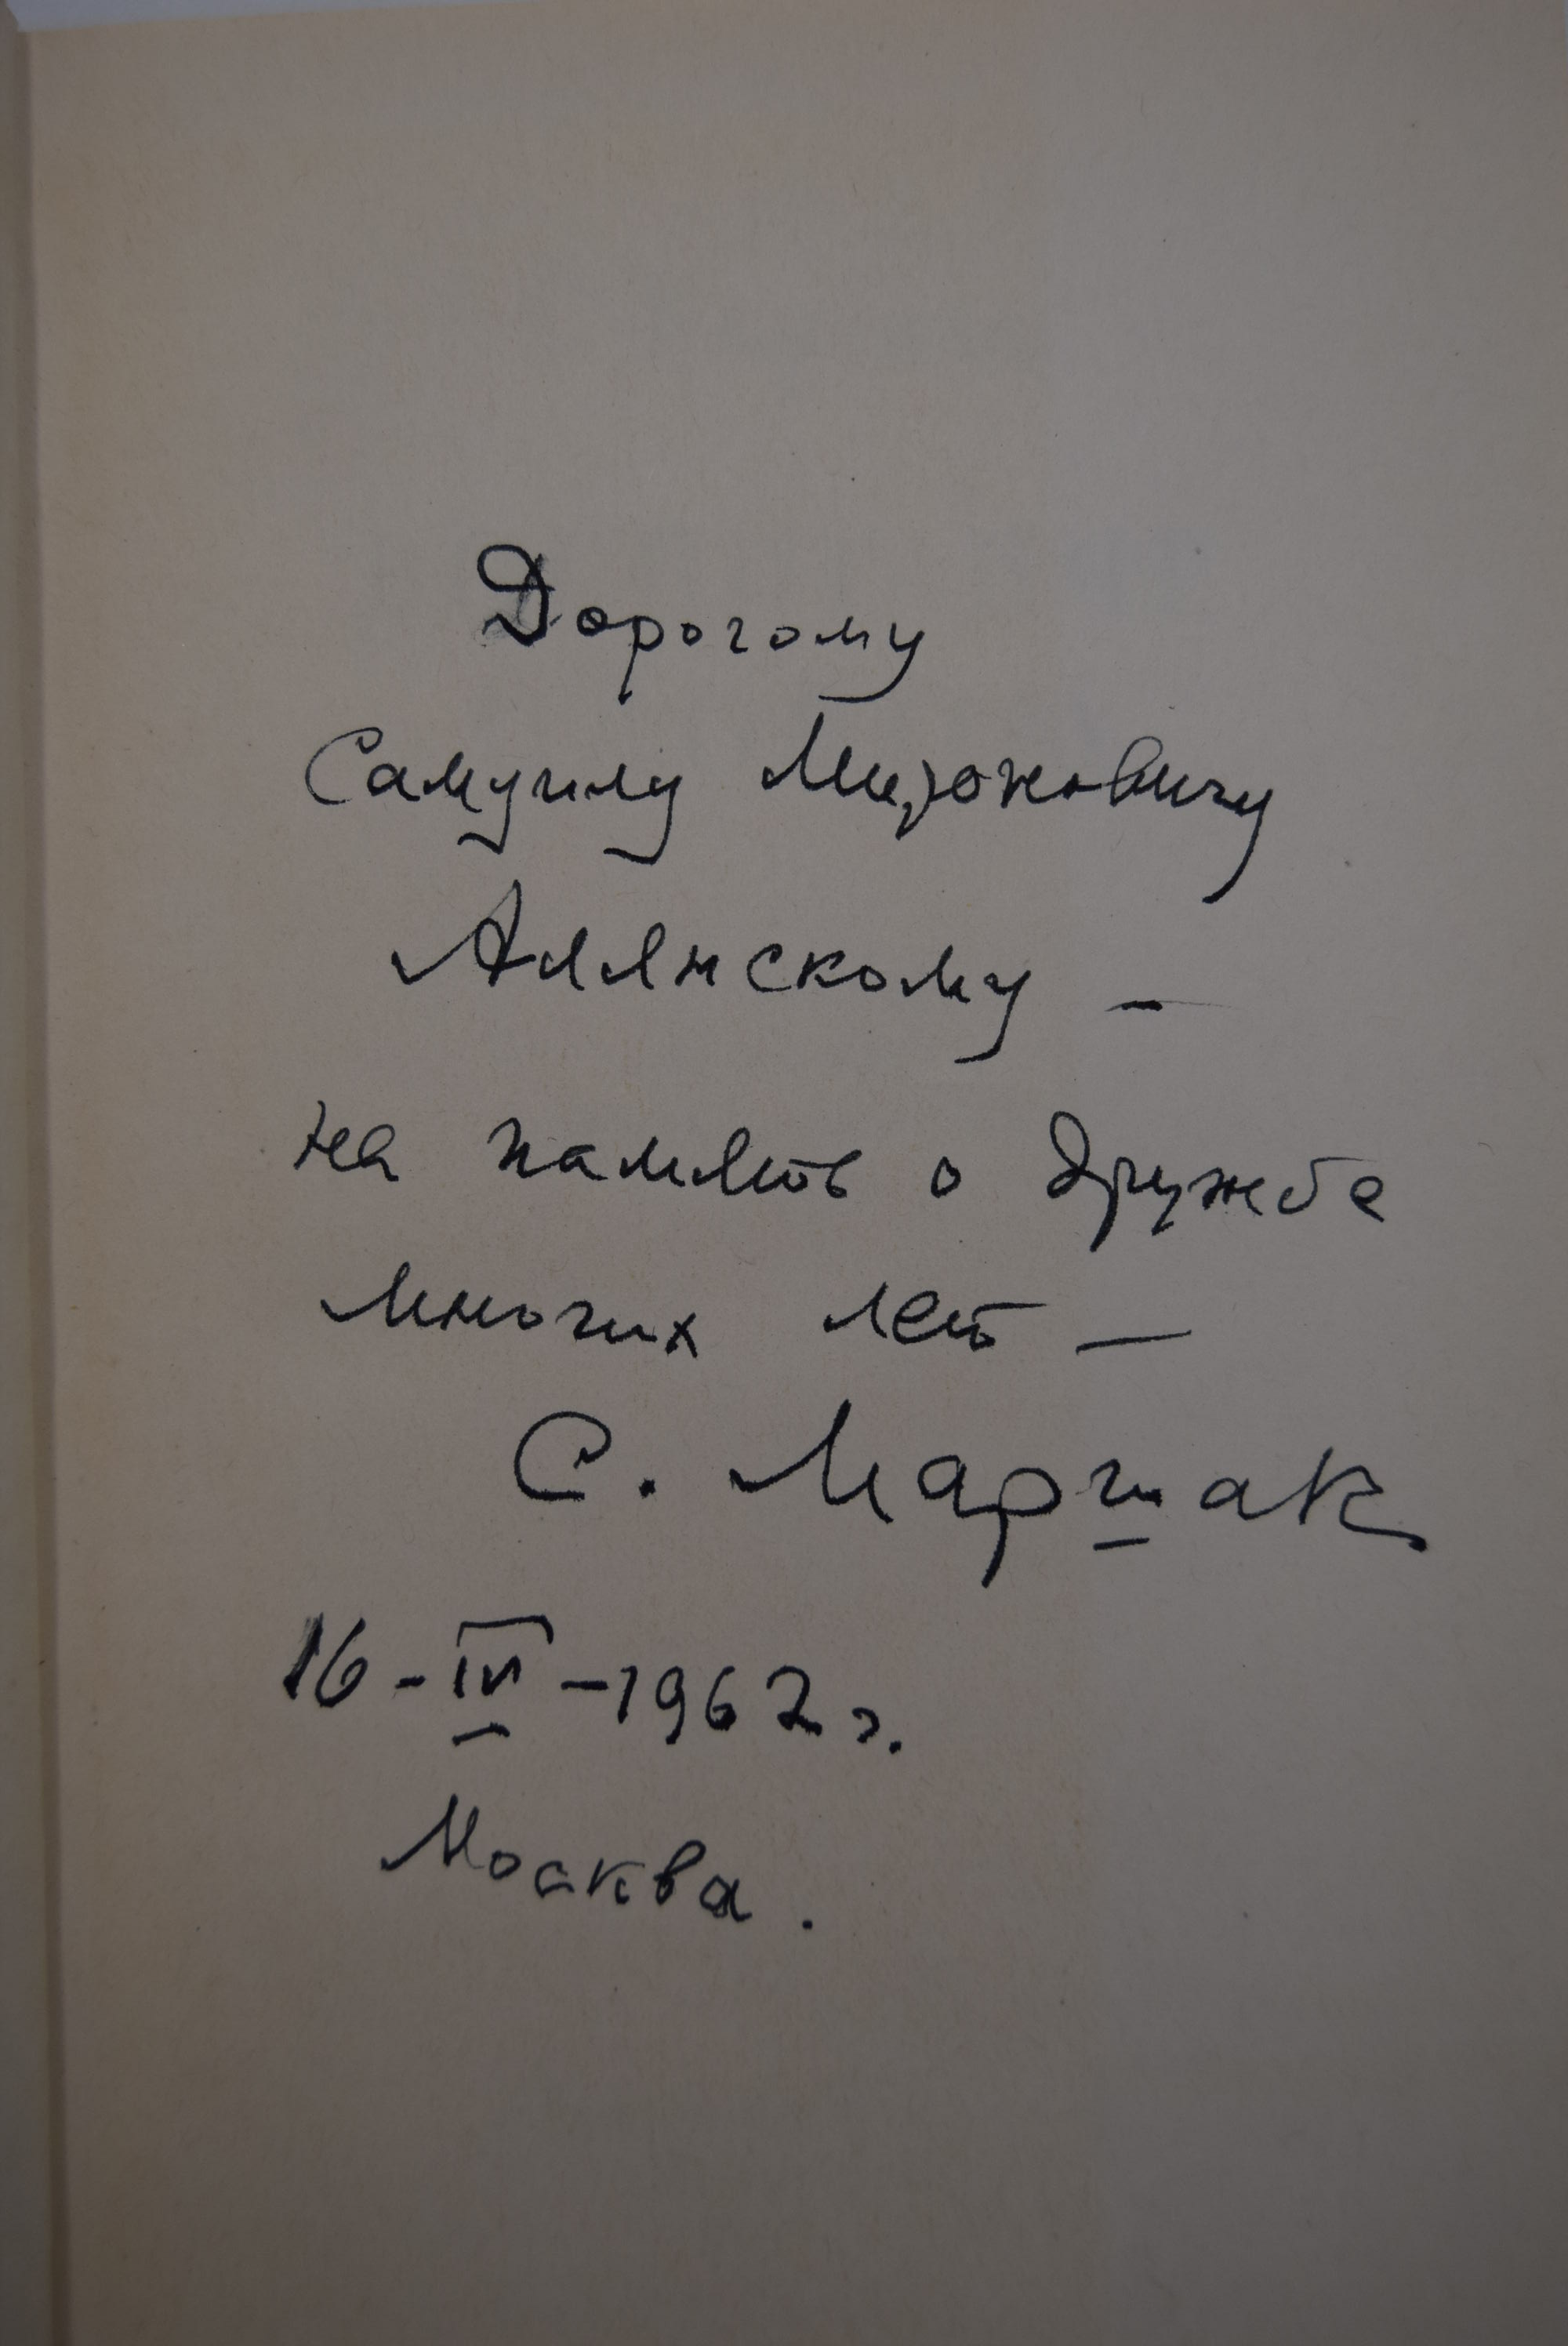 Дорогому
Самуилу Мироновичу
Алянскому —
на память о дружбе
многих лет —
С. Маршак
16-IV-1962 г.
Москва.